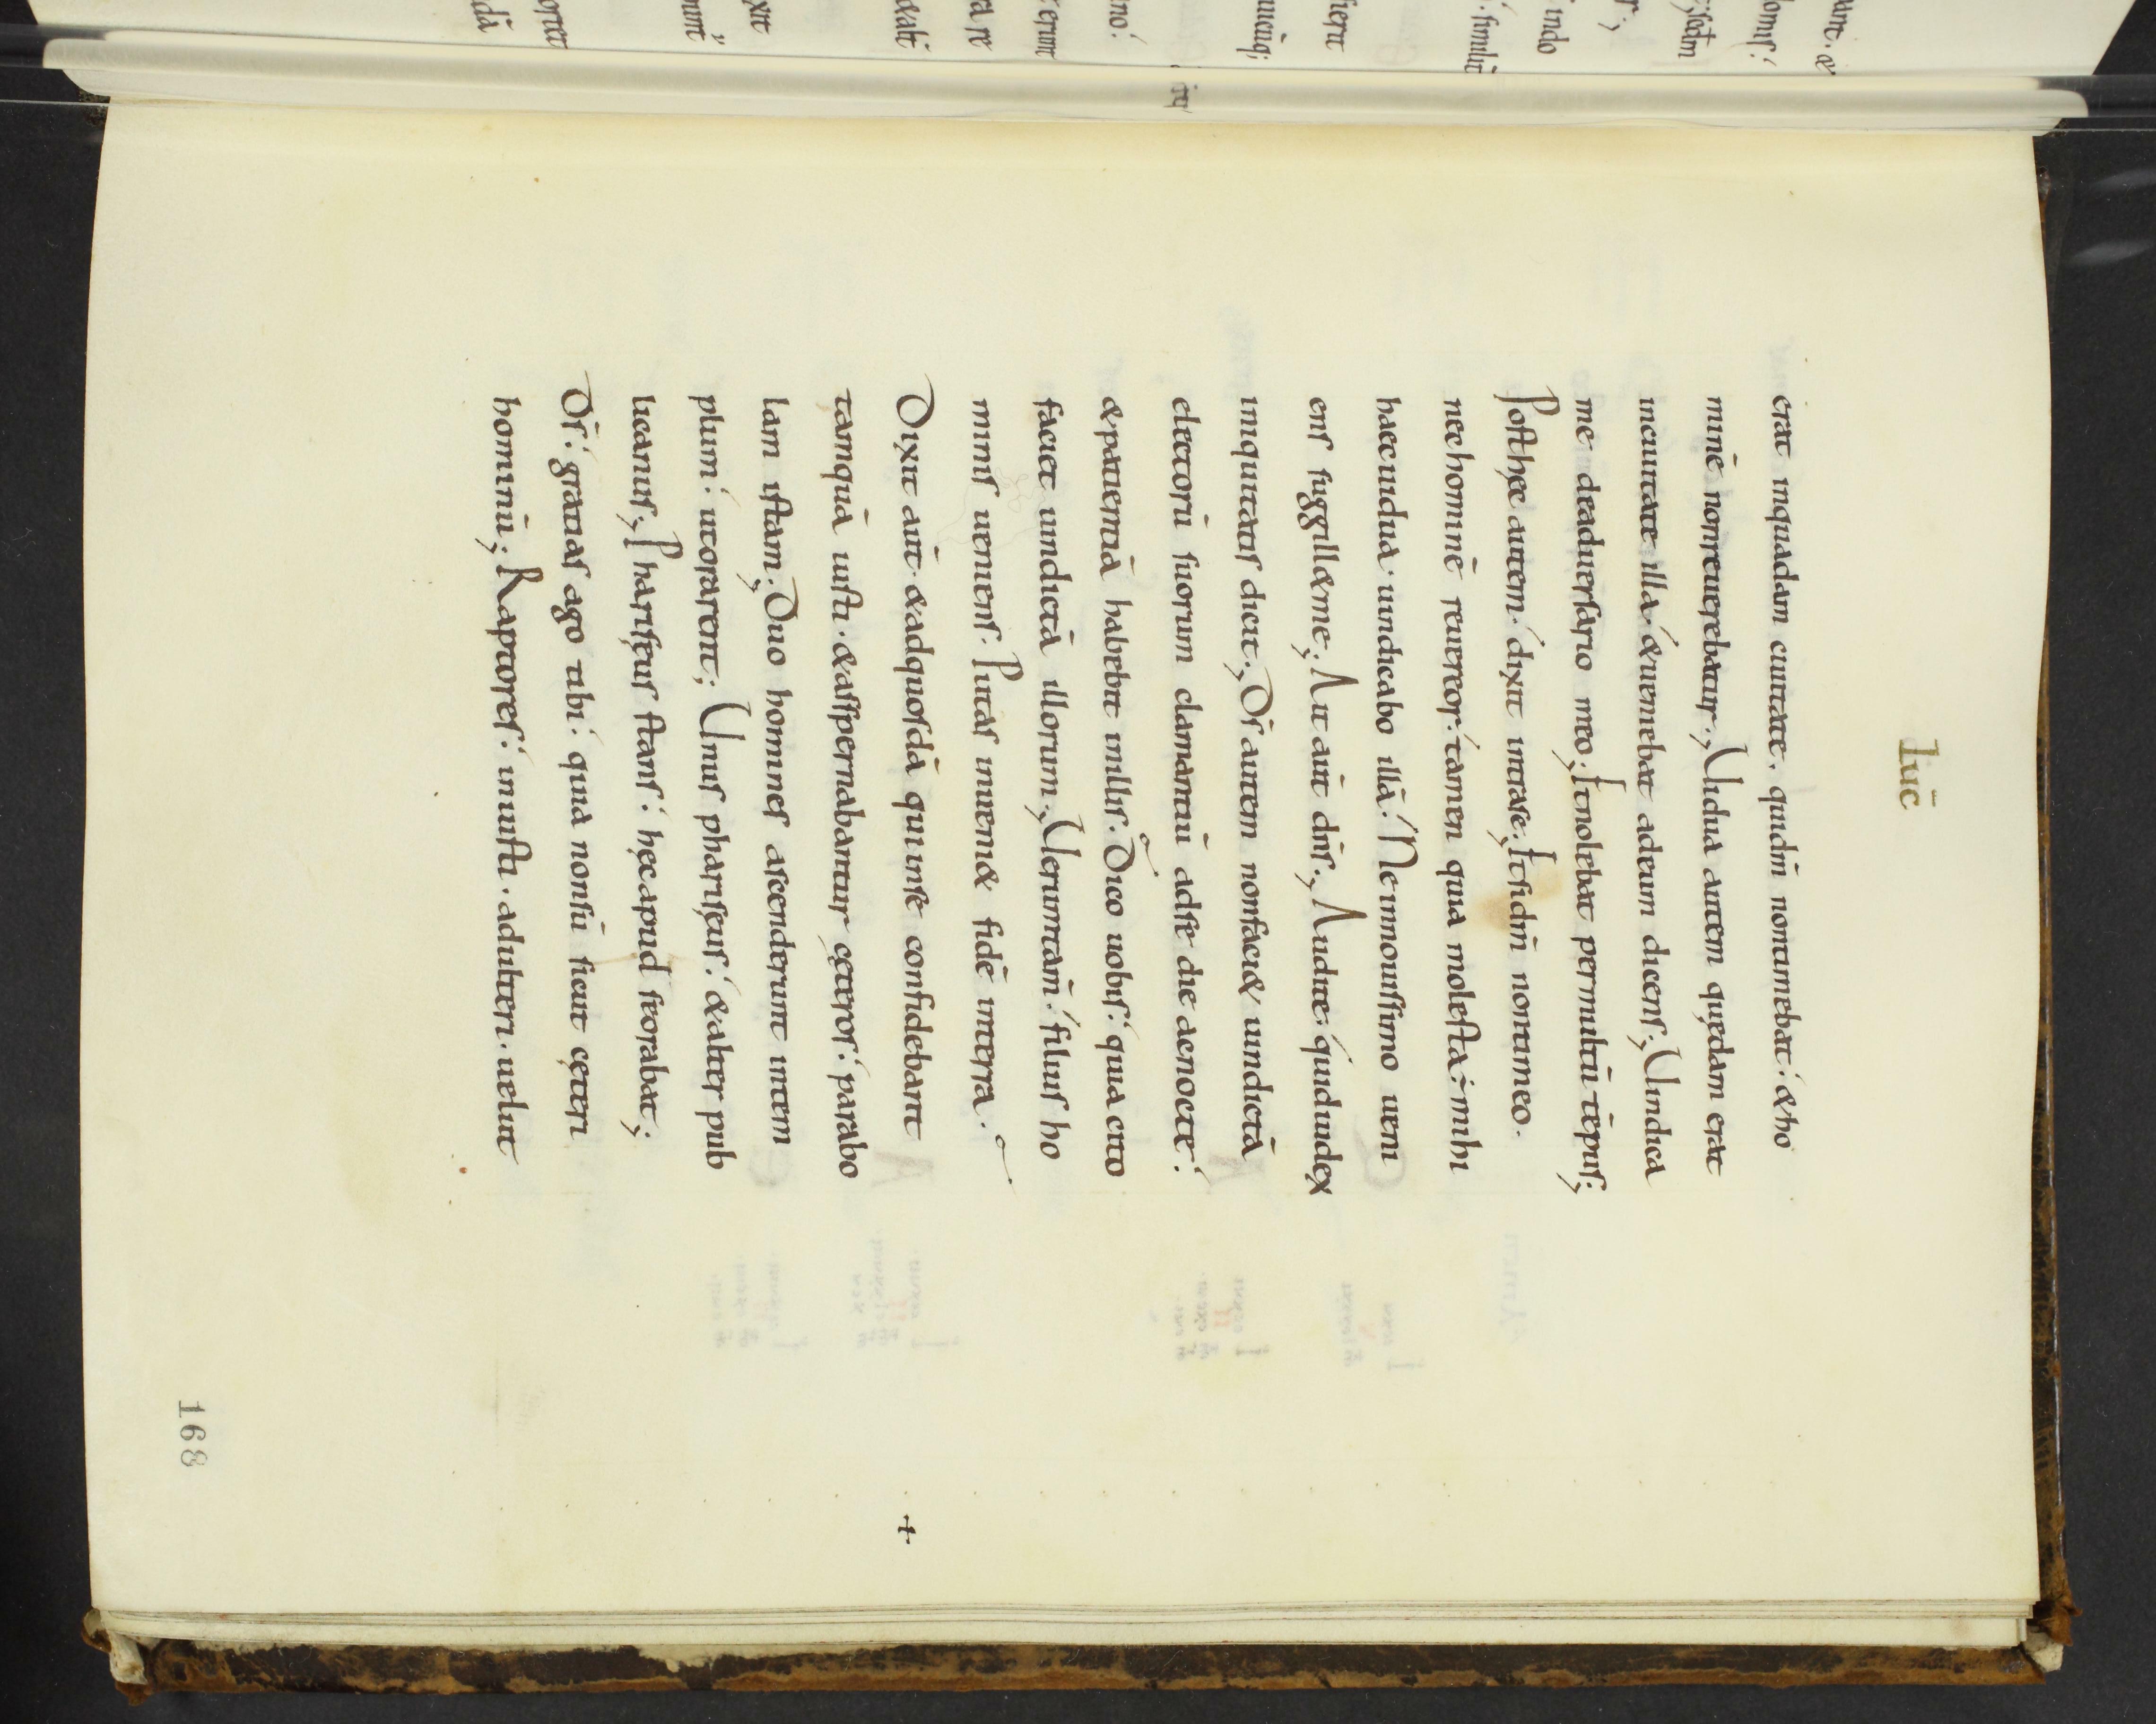 Luc̄
erat inquadam ciuitate. quidm̄ nontimebat. & ho
minē nonreuerebatur; Vidua autem quędam erat
inciuitate illa. &ueniebat adeum dicens; Vindica
me deaduersario meo; Et nolebat permultū tēpus;
Posthęc autem. dixit intrase. Etsidm̄ nontimeo.
nec hominē reuereor. tamen quia molesta÷ mihi
haecuidua. uindicabo illā. Ne innouissimo ueni
ens suggill&me; Ait aūt dn̄s; Audite. quidiudex
iniquitatis dicit; Ds̄ autem nonfaci& uindictā
electorū suorum clamantiū adse die acnocte.
&patientiā habebit inillis. Dico uobis. quia cito
faciet uindictā illorum; Verumtam̄. filius ho
minis ueniens. Putas inueni& fidē interra.
Dixit aūt. &adquosdā quiinse confidebant
tamquā iusti. &aspernabantur cęteros. parabo
lam istam; Duo homines ascenderunt intem
plum. utorarent; Vnus pharisęus. &alter pub
licanus; Pharisęus stans. hęcapud seorabat;
Ds̄. gratias ago tibi. quia nonsū sicut cęteri
hominū; Raptores. iniusti. adulteri. uelut
+
168